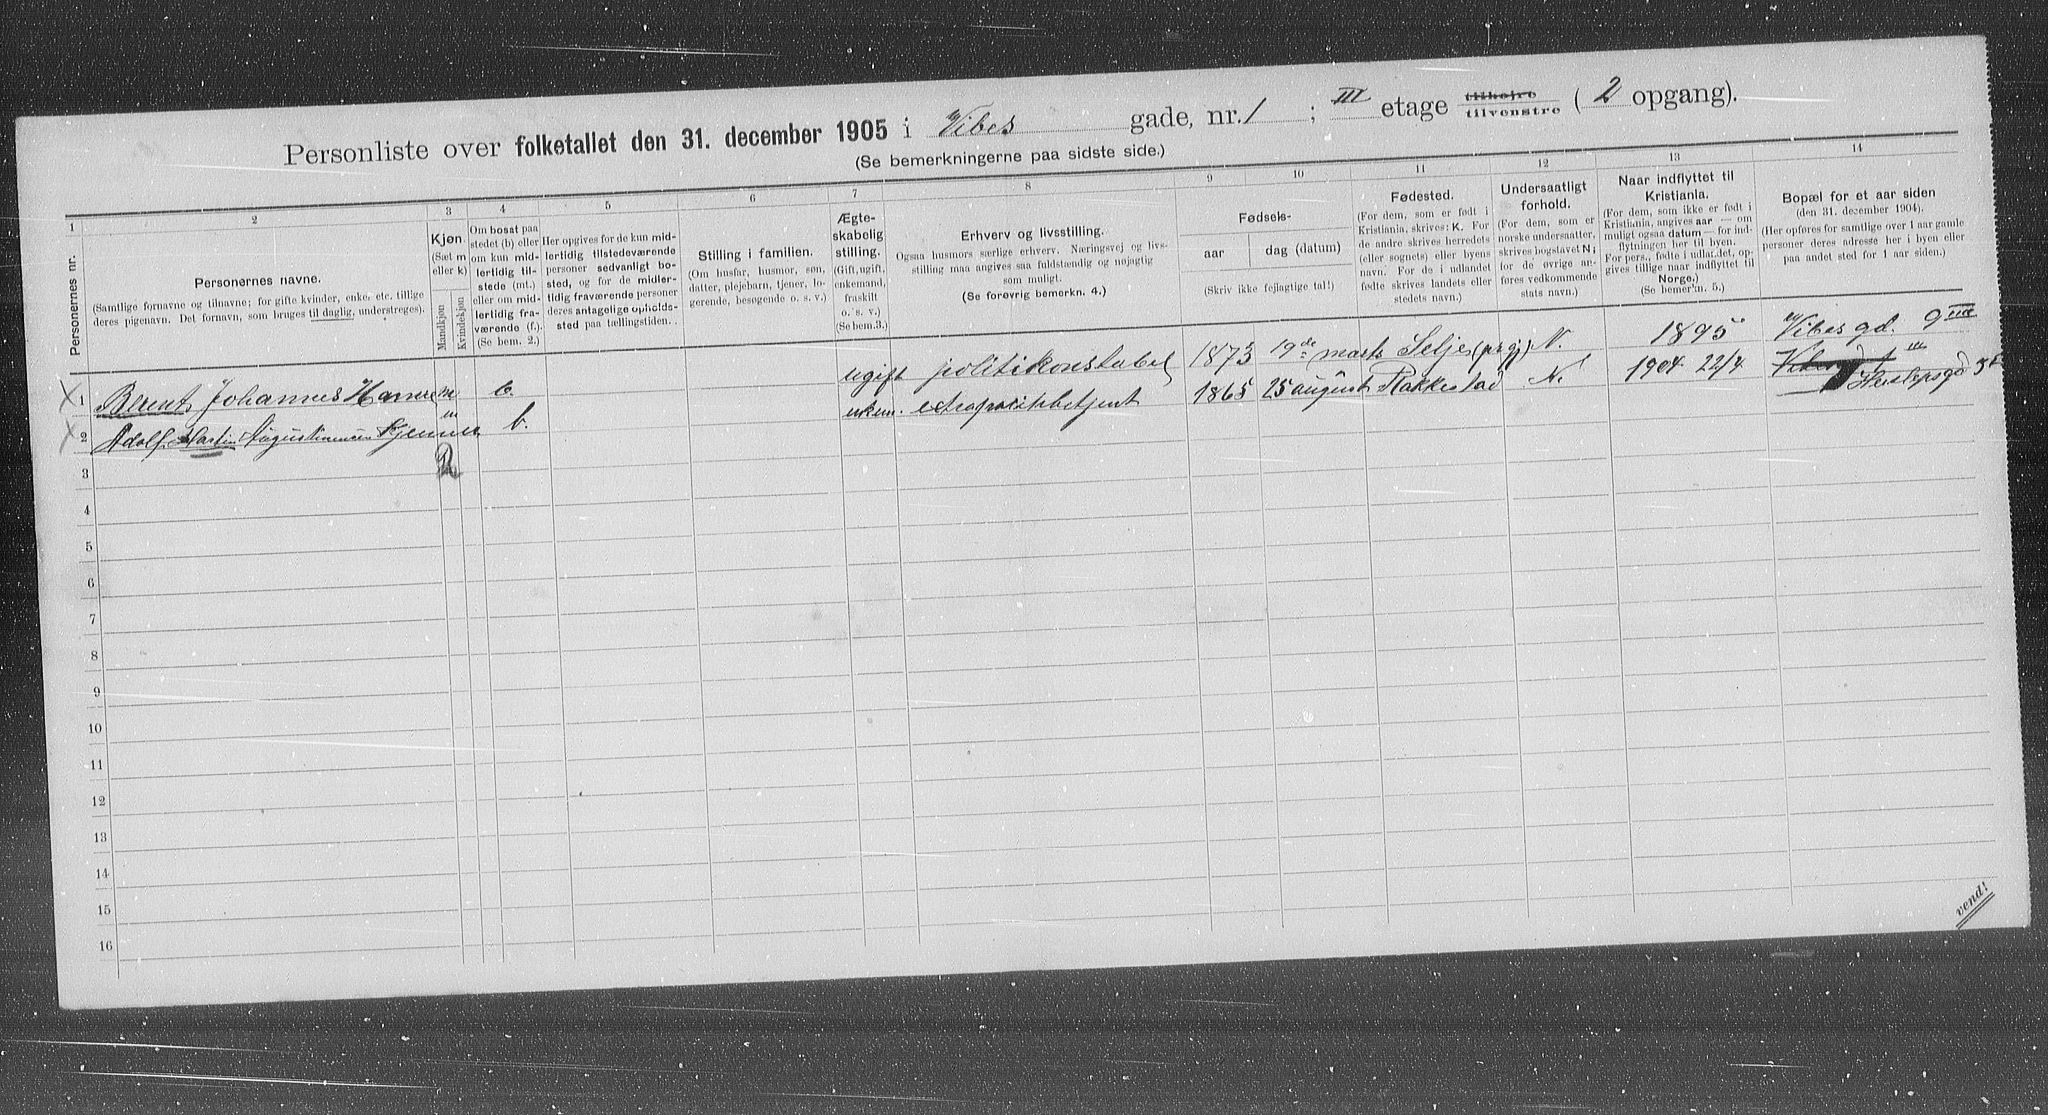 Personliste over folketallet den 31. december 1905 i Vibes gade, nr. 1 ; III etage tilhøjre tilvenstre ( 2 opgang).
(Se bemerkningerne paa sidste side.)
1 2 3 4 5 6 7 8 9 10 11 12 13 14
Personernes nr.
Personernes navne.
(Samtlige fornavne og tilnavne; for gifte kvinder, enker etc. tillige
deres pigenavn. Det fornavn, som bruges til daglig, understreges).
Kjøn
(Sæt m
eller k)
Mandkjøn
Kvindekjøn
Om bosat paa
stedet (b) eller
om kun mid-
lertidig til-
stede (mt.)
eller om mid-
lertidig fra-
værende (f.).
(Se bem. 2.)
Her opgives for de kun mid-
lertidig tilstedeværende
personer sedvanligt bo-
sted, og for de midler-
tidig fraværende personer
deres antagelige opholds-
sted paa tællingstiden.
Stilling i familien.
(Om husfar, husmor, søn,
datter, plejebarn, tjener, lo-
gerende, besøgende o. s. v.)
Ægte-
skabelig
stilling.
(Gift, ugift,
enkemand,
fraskilt
o. s. v.)
(Se bem.3.)
Erhverv og livsstilling.
Ogsaa husmors særlige erhverv. Næringsvej og livs-
stilling maa angives saa fuldstændig og nøjagtig
som muligt.
(Se forøvrig bemerkn. 4.)
Fødsels-
aar
dag (datum)
(Skriv ikke fejlagtige tal!)
Fødested.
(For dem, som er født i
Kristiania, skrives: K. For
de andre skrives herredets
(eller sognets) eller byens
navn. For de i udlandet
fødte skrives landets eller
stedets navn.)
Undersaatligt
forhold.
(For dem, som er
norske undersaatter,
skrives bogstavet N;
for de øvrige an-
føres vedkommende
stats navn.)
Naar indflyttet til
Kristiania.
(For dem, som ikke er født i
Kristiania, angives aar — om
muligt ogsaa datum — for ind-
flytningen her til byen.
For pers., fødte i udlandet, op-
gives tillige naar indflyttet til
Norge.)
(Se bemerkn. 5.)
Bopæl for et aar siden
(den 31. december 1904).
(Her opføres for samtlige over 1 aar gamle
personer deres adresse her i byen eller
paa andet sted for 1 aar siden.)
1 Bernt Johannes m b. ugift politikonstabel 1873 19de marts Selje N. 1895 Vibes gd. 9
2 Adolf Martin Augustinussen m b. 1865 25 august Rakkestad N. 1904 22/4
3
4
5
6
7
8
9
10
11
12
13
14
15
16
vend!